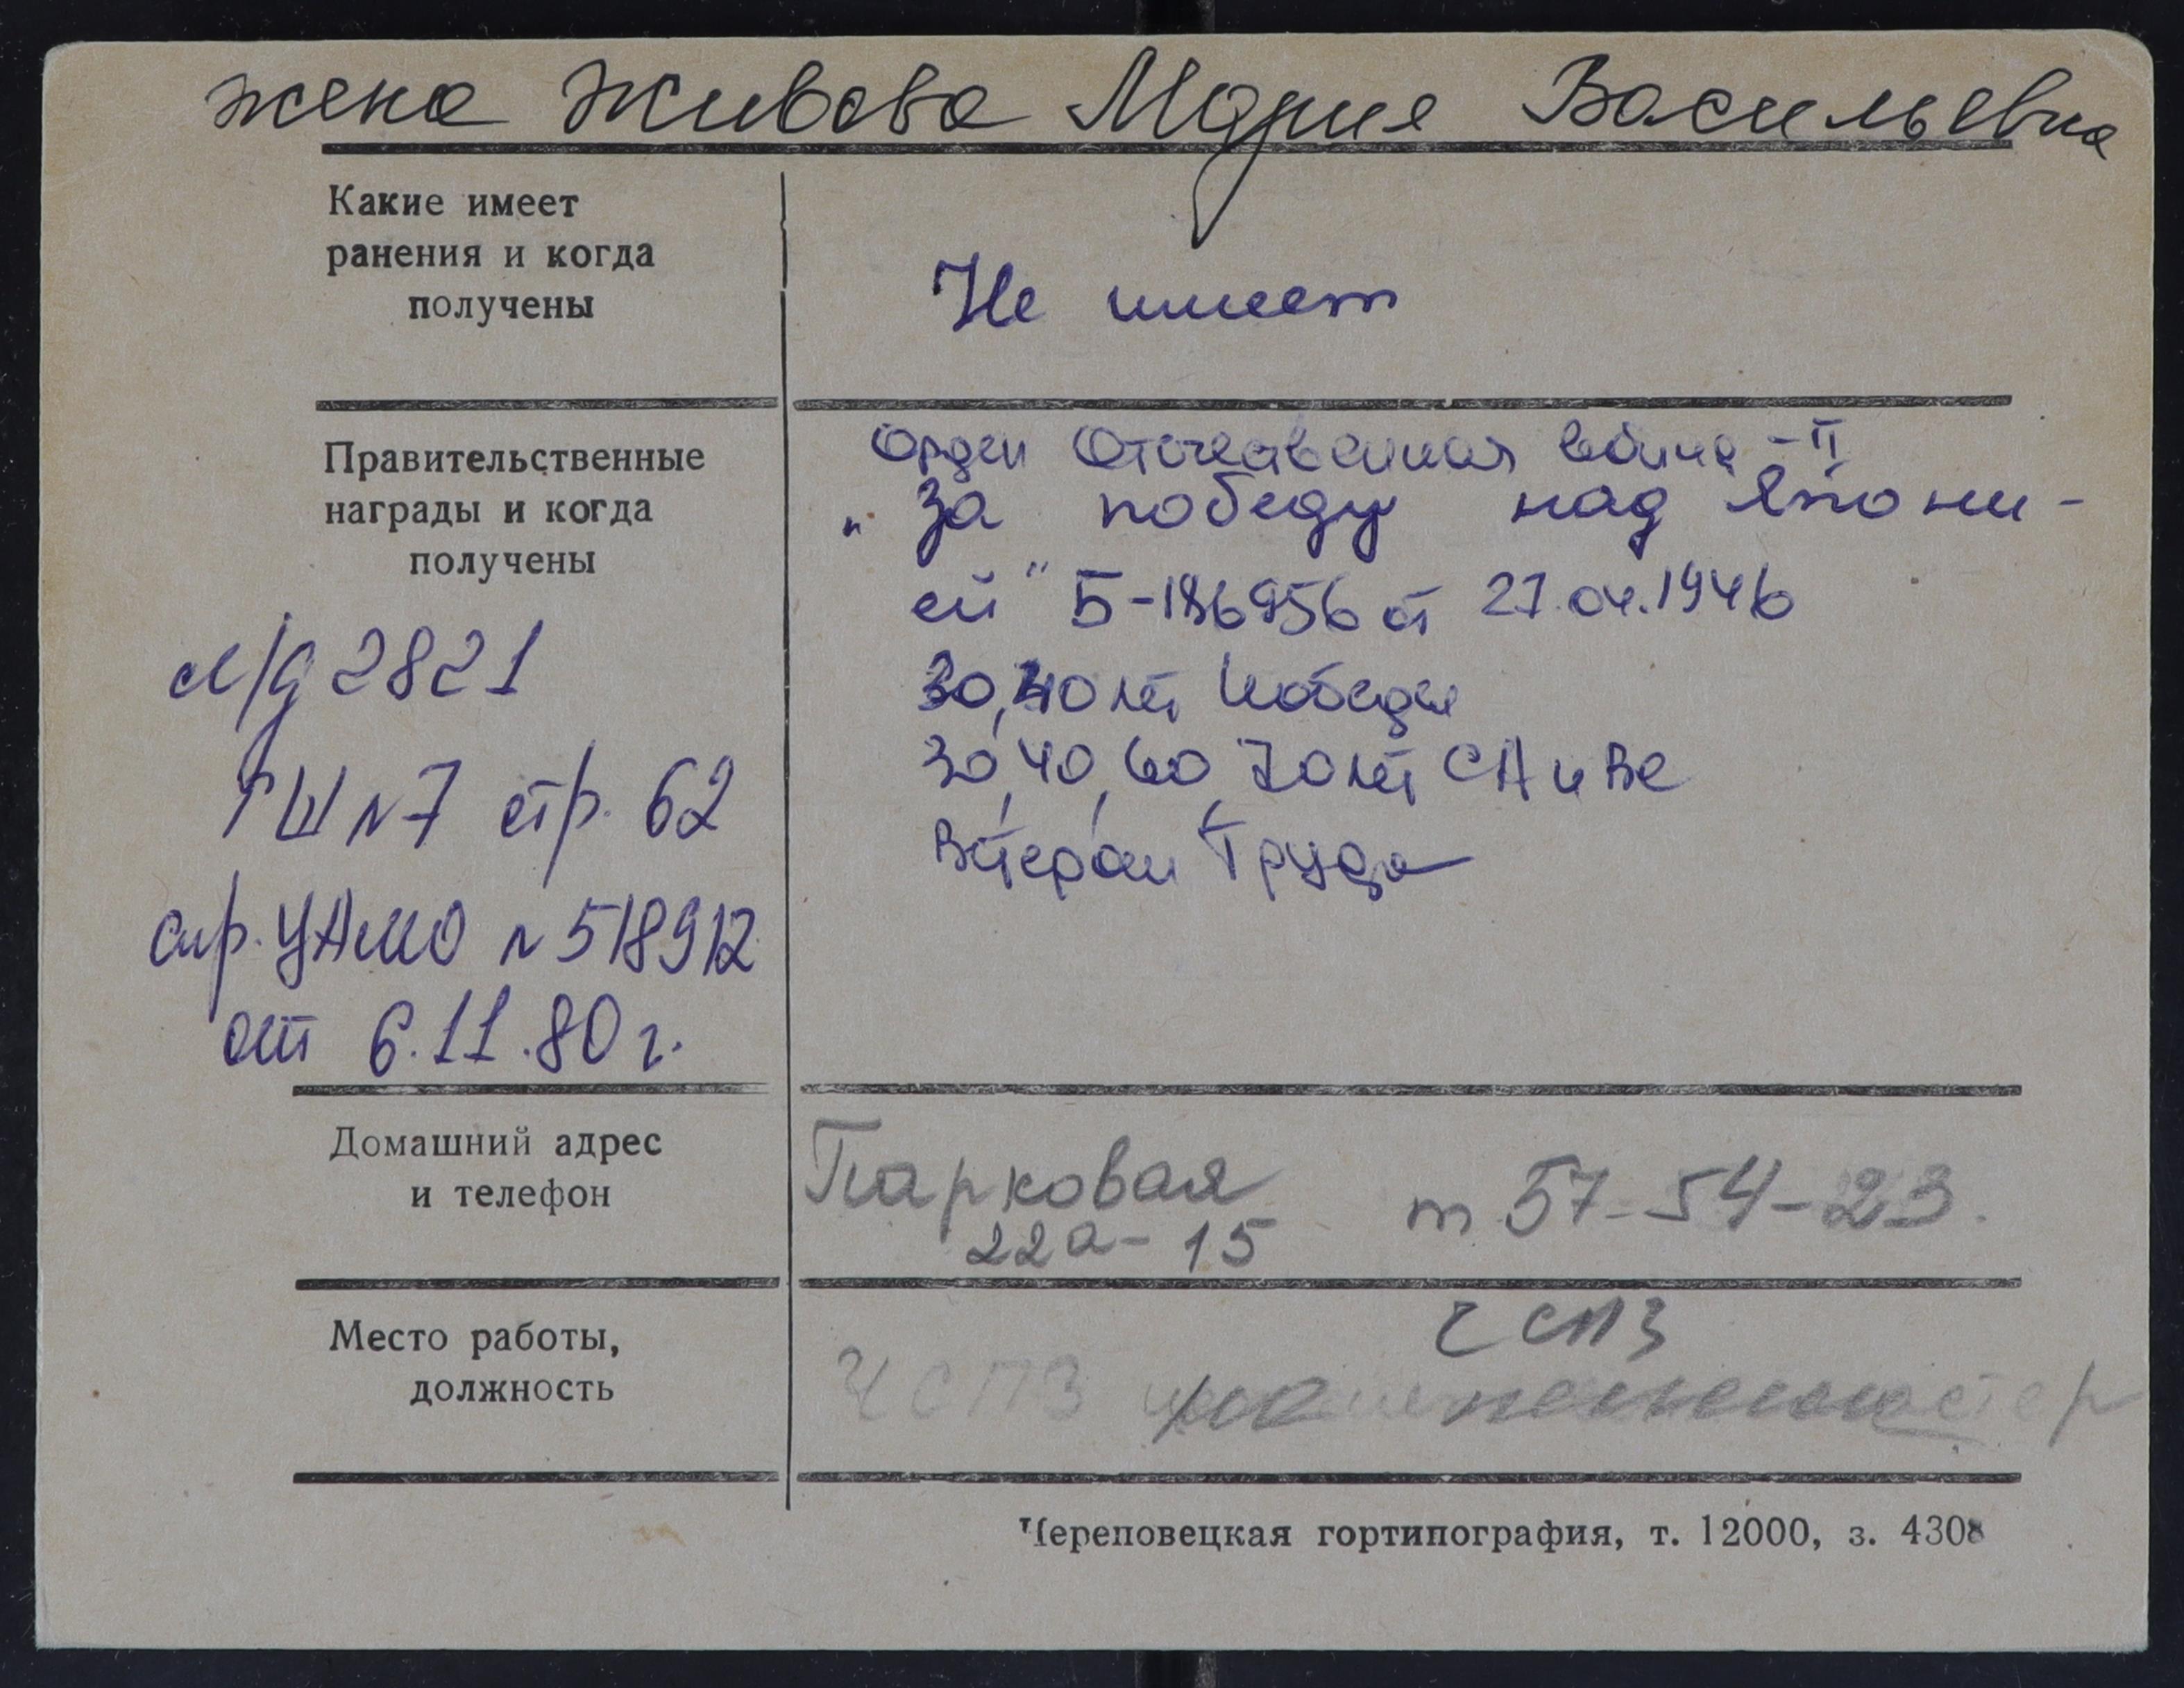 жена Живова Мария Васильевна
Какие имеет
ранения и когда
получены
Не имеет
Правительственные
награды и когда
получены
Орден Отечественная война - II
"За победу над Япони-
ей" Б-186956 от 27.04.1946
30, 40 лет Победы
30, 40, 60, 70 лет СА и ВС
Ветеран Труда
л/д 2821
ГШ №7 стр. 62
спр. ЦАМО № 518912
от 6.11.80 г.
Домашний адрес
и телефон
Парковая
22а - 15
т 57-54-23.
Место работы,
должность
ЧСПЗ
ЧСПЗ
Череповецкая гортипография, т. 12000, з. 4308